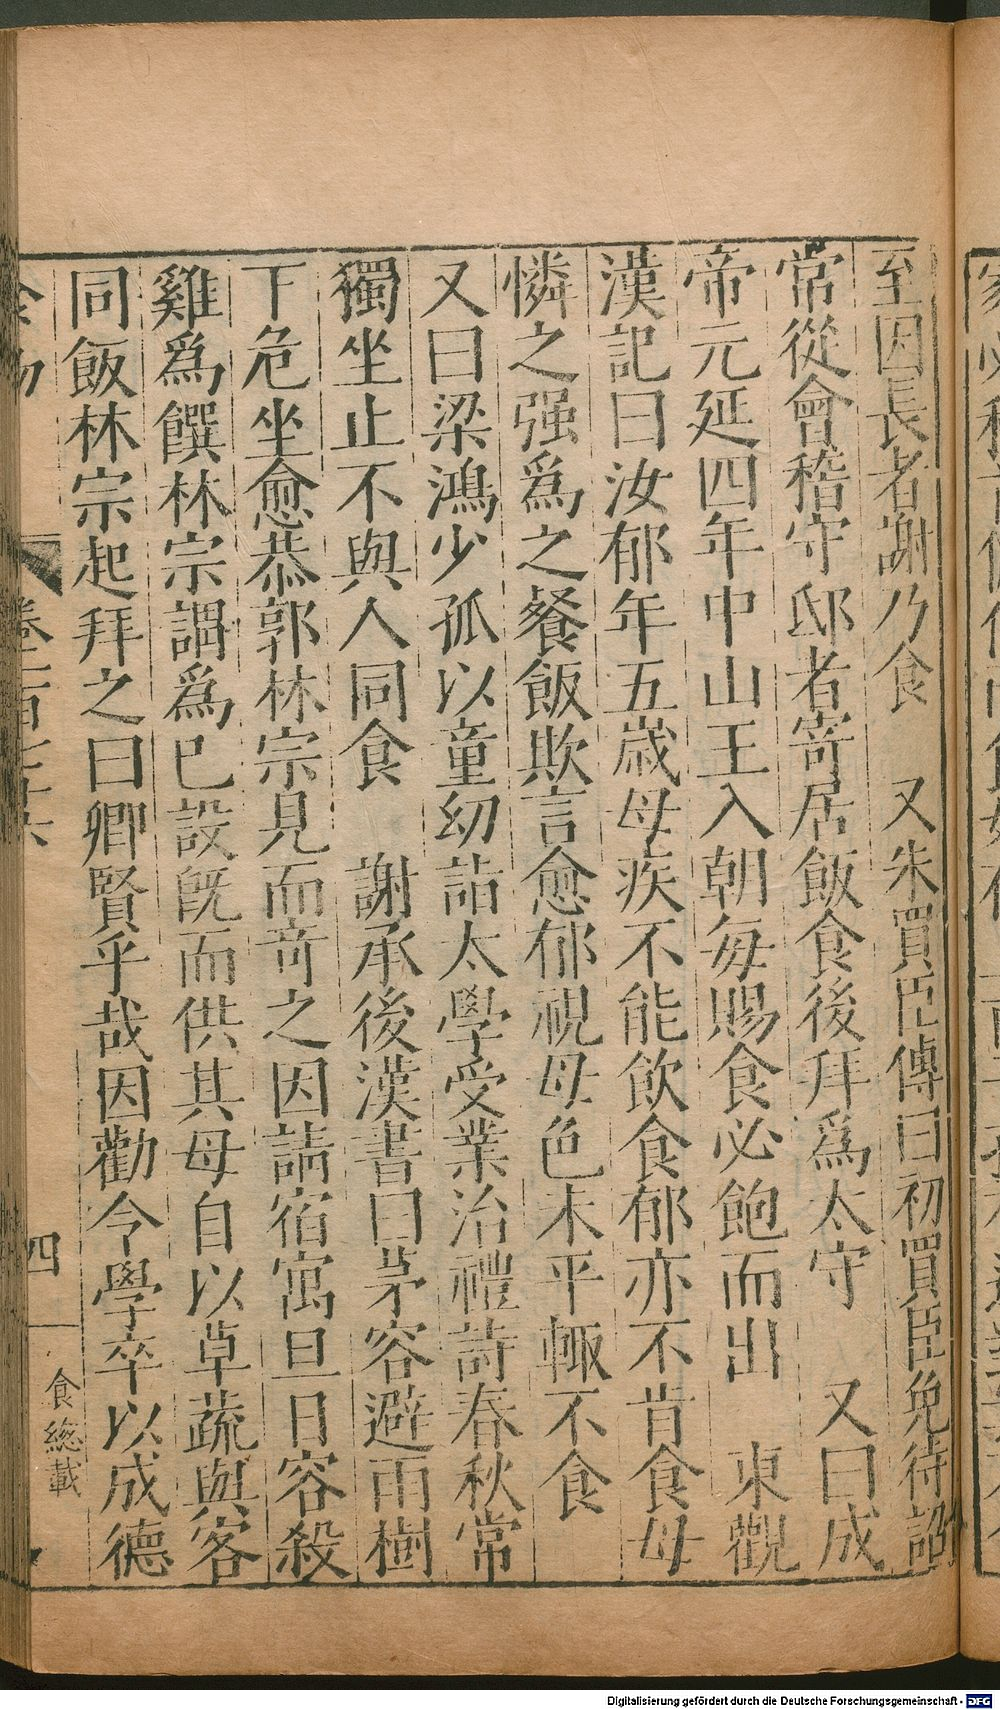 至因長者謝乃食　又朱買臣傳曰初買臣免待詔
常從會稽守邸者寄居飯食後拜爲太守　又曰成
帝元延四年中山王入朝每賜食必飽而出　東觀
漢記曰汝郁年五歳母疾不能飲食郁亦不肯食母
憐之强爲之餐飯欺言愈郁視母色未平輙不食
又曰梁鴻少孤以童幼詣太學受業治禮詩春秋常
獨坐止不與人同食　謝承後漢書曰茅容避雨樹
下危坐愈恭郭林宗見而竒之因請宿寓旦日容殺
雞爲饌林宗謂爲已設旣而供其母自以草蔬與客
同飯林宗起拜之曰卿賢乎哉因勸令學卒以成德
卷二百
四
食總載
Digitalisierung gefördert durch die Deutsche Forschungsgemeinschaft - DFG